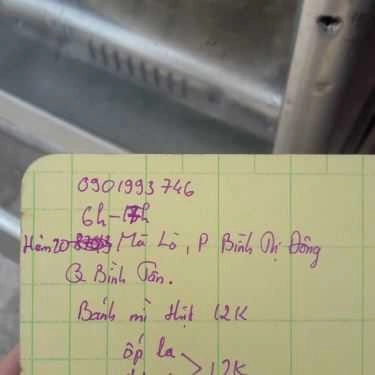 0901993746
6h - 17h
Hẻm 20 Mã Lò, P Bình Thị Đông
Q Bình Tân.
Bánh mì thịt 12K
ốp la
12K